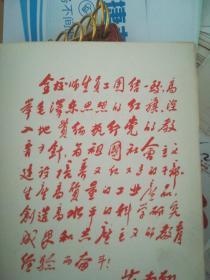 全校师生员工团结一致，高
举毛泽东思想的红旗，深
入地贯彻执行党的教
育方针，为祖国社会主义
建设培养又红又专的干部，
生产高质量的工业产品，
创造高水平的科学研究
成果和共产主义的教育
经验而奋斗！